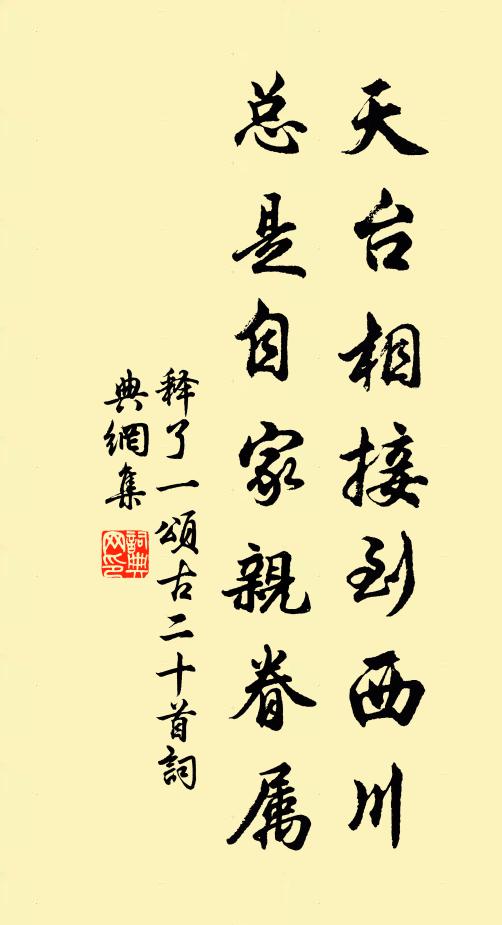 天台相接到西川
总是自家親眷属
释了一頌古二十首詞
典網集
詞典
网印